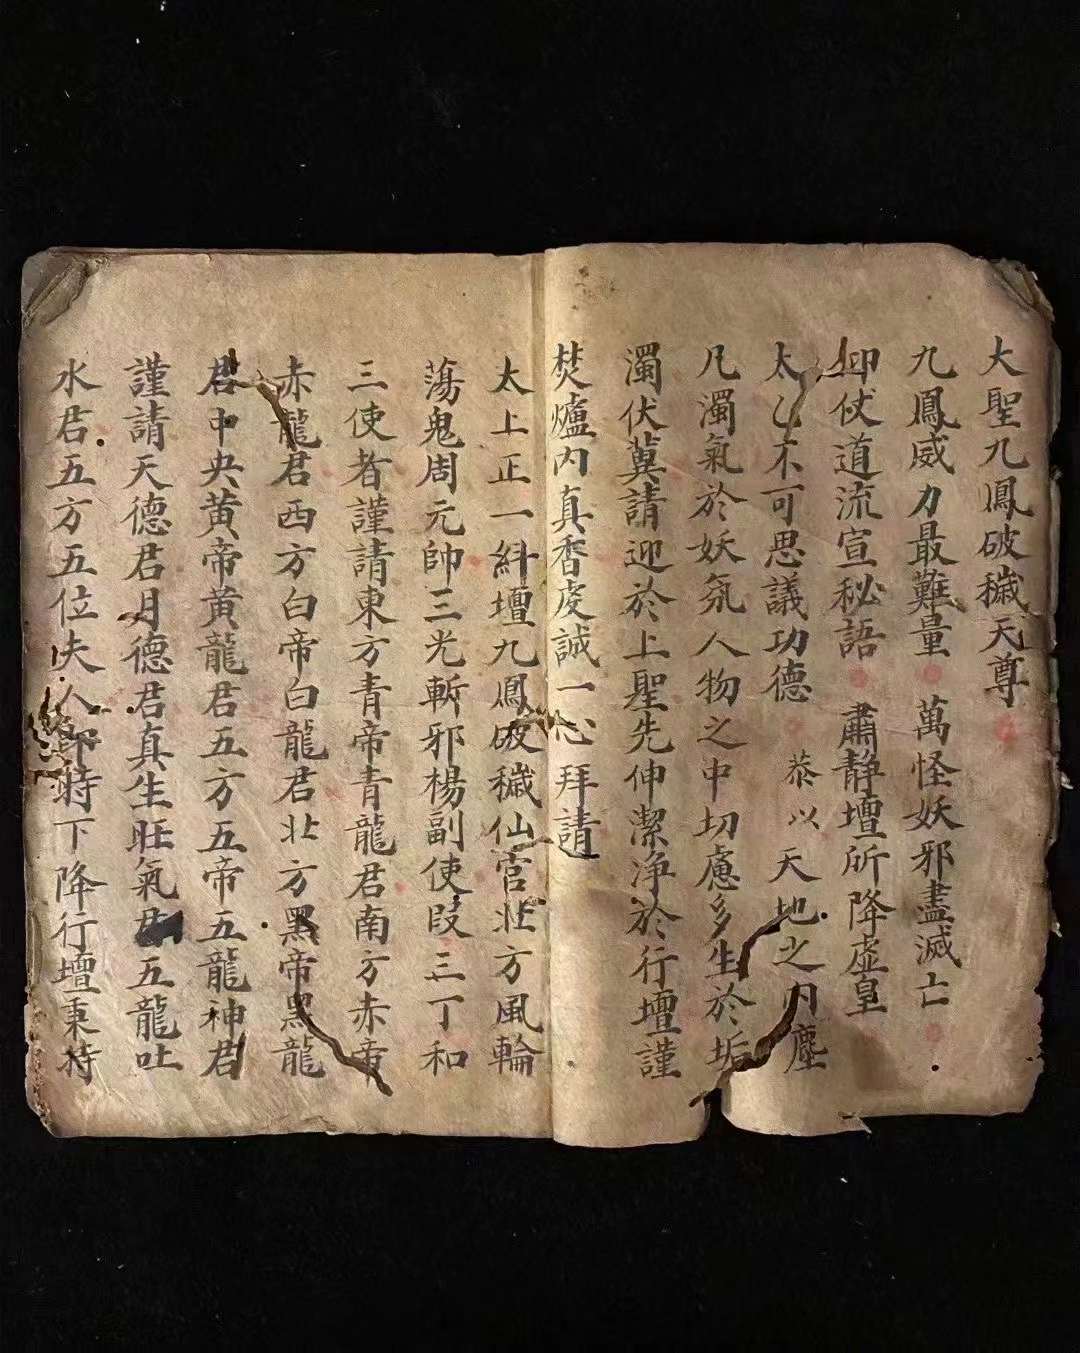 大聖九鳳破穢天尊
九鳳威力最難量 萬怪妖邪盡滅亡
仰仗道流宣秘語 肅静壇所降虛皇
太乙不可思議功德 恭以 天地之内塵
凡濁氣於妖氛人物之中切慮多生於垢
濁伏冀請迎於上聖先伸潔净於行壇謹
焚爐内真香虔誠一心拜請
太上正一糾壇九鳳破穢仙官北方風輪
蕩鬼周元帥三光斬邪楊副使段三丁和
三使者謹請東方青帝青龍君南方赤帝
赤龍君西方白帝白龍君北方黑帝黑龍
君中央黄帝黄龍君五方五帝五龍神君
謹請天德君月德君真生旺氣君五龍吐
水君五方五位夫人即時下降行壇秉持